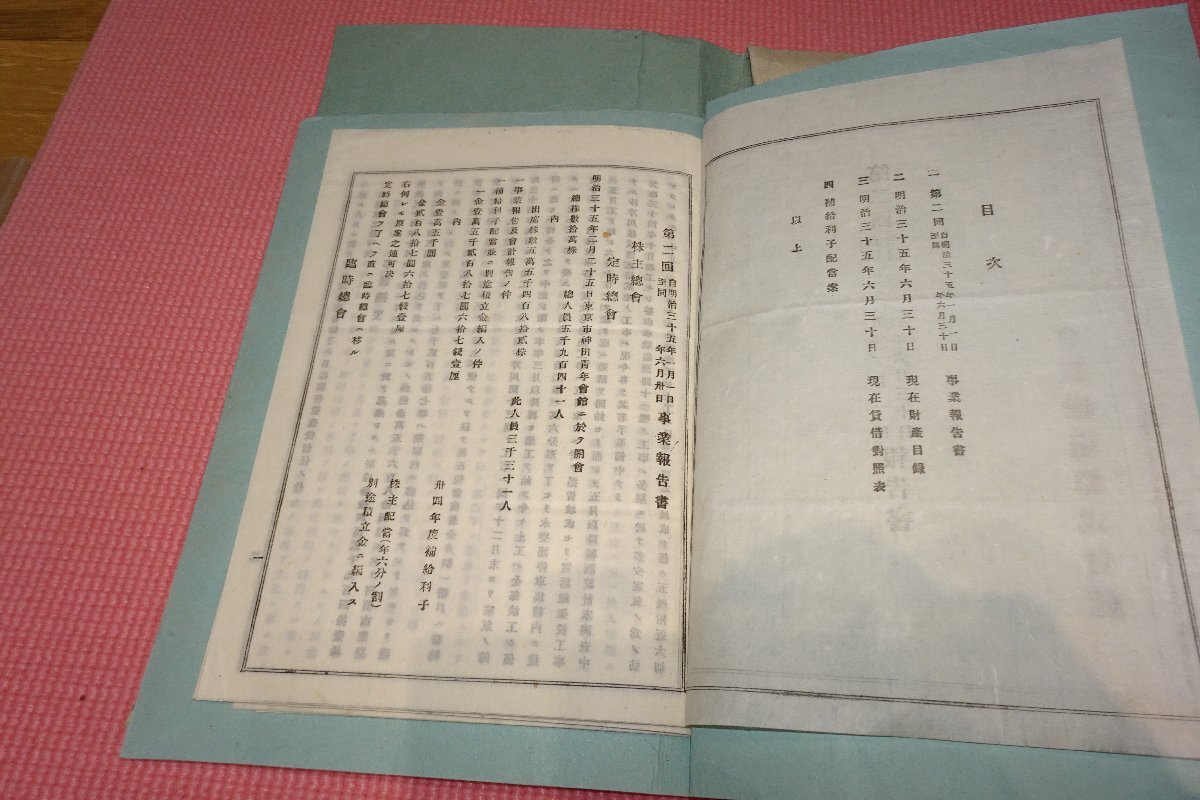 目次
一 第二回 自明治三十五年一月一日 至同年六月三十日 事業報告書
二 明治三十五年六月三十日 現在財產目録
三 明治三十五年六月三十日 現在貸借對照表
四 補給利子配當案
以上
第二回 自明治三十五年一月一日 至同年六月卅日 事業報告書
株主總會
定時總會
明治三十五年二月二十五日東京市神田靑年會館ニ於テ開會
總株數拾萬株 總人員五千九百四十一人
內
出席株數五萬五千四百八拾貳株 此人員三千三十一人
一事業報告及會計報告ノ件
一補給利子配當並ニ別途積立金編入ノ件
一金壹萬五千貳百八拾七圓六拾七錢壹厘 卅四年度補給利子
內
金壹萬五千圓 株主配當(年六分ノ割)
金貳百八拾七圓六拾七錢壹厘 別途積立金ニ編入ス
右何レモ原案之通可決
定時總會ヲ了ヘテ直ニ臨時總會ニ移ル
臨時總會
一